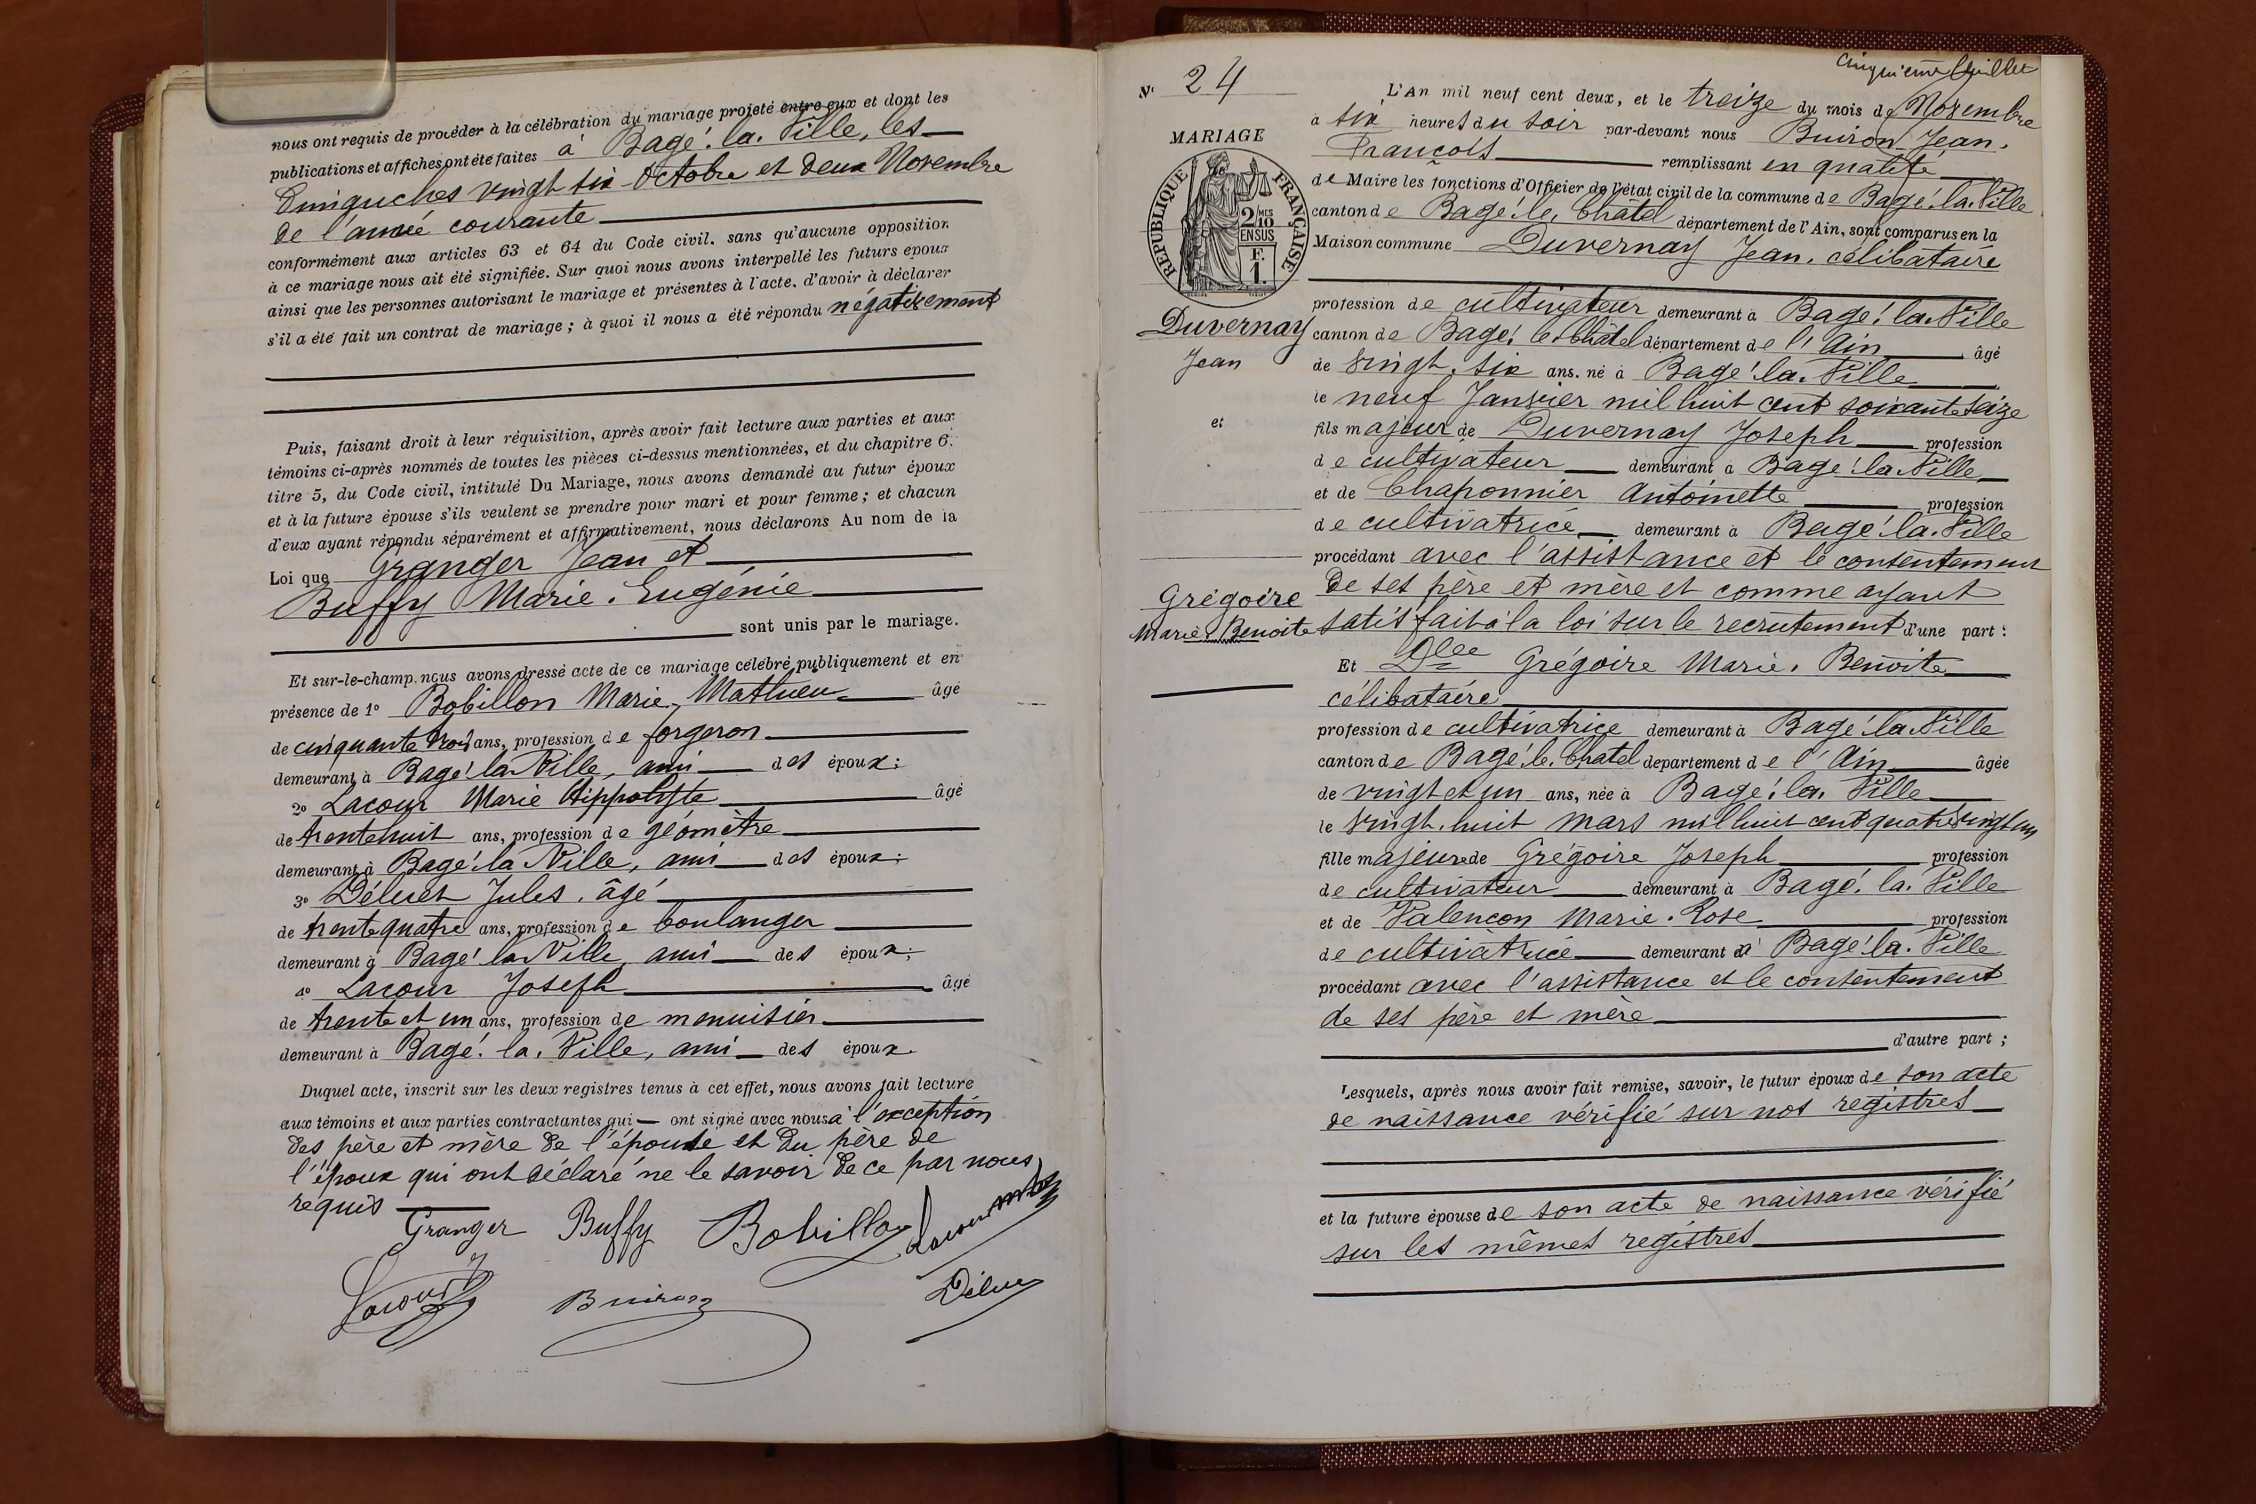 nous ont requis de procéder à la célébration du mariage projeté entre eux et dont les
publications et affiches ont été faites à Bagé-la-Ville, les
Dimanches vingt six Octobre et deux Novembre
de l'année courante
conformément aux articles 63 et 64 du Code civil, sans qu'aucune opposition
à ce mariage nous ait été signifiée. Sur quoi nous avons interpellé les futurs époux
ainsi que les personnes autorisant le mariage et présentes à l'acte, d'avoir à déclarer
s'il a été fait un contrat de mariage ; à quoi il nous a été répondu négativement
Puis, faisant droit à leur réquisition, après avoir fait lecture aux parties et aux
témoins ci-après nommés de toutes les pièces ci-dessus mentionnées, et du chapitre 6.
titre 5, du Code civil, intitulé Du Mariage, nous avons demandé au futur époux
et à la future épouse s'ils veulent se prendre pour mari et pour femme ; et chacun
d'eux ayant répondu séparément et affirmativement, nous déclarons Au nom de la
Loi que Granger Jean et
Buffy Marie-Eugénie
sont unis par le mariage.
Et sur-le-champ, nous avons dressé acte de ce mariage célébré publiquement et en
présence de 1° Bobillon Marie-Mathieu âgé
de cinquante trois ans, profession de forgeron
demeurant à Bagé-la-Ville, ami des époux ;
2° Lacour Marie Hippolyte âgé
de trente huit ans, profession de géomètre
demeurant à Bagé-la-Ville, ami des époux ;
3° Déluet Jules, âgé
de trente quatre ans, profession de boulanger
demeurant à Bagé-la-Ville, ami des époux ;
4° Lacour Joseph âgé
de trente et un ans, profession de menuisier
demeurant à Bagé-la-Ville, ami des époux.
Duquel acte, inscrit sur les deux registres tenus à cet effet, nous avons fait lecture
aux témoins et aux parties contractantes qui ont signé avec nous à l'exception
des père et mère de l'épouse et du père de
l'époux qui ont déclaré ne le savoir de ce par nous
requis
Granger Buffy Bobillon Lacour
Lacour Buiron Déluet
Cinquième feuillet
N° 24
MARIAGE
RÉPUBLIQUE FRANÇAISE
2/10 MES
EN SUS
F. 1.
Duvernay
Jean
et
Grégoire
Marie-Benoite
L'An mil neuf cent deux, et le treize du mois de Novembre
à six heures du soir par-devant nous Buiron Jean-
François remplissant en qualité
de Maire les fonctions d'Officier de l'état civil de la commune de Bagé-la-Ville
canton de Bagé-le-Châtel département de l'Ain, sont comparus en la
Maison commune Duvernay Jean, célibataire
profession de cultivateur demeurant à Bagé-la-Ville
canton de Bagé-le-Châtel département de l'Ain âgé
de vingt-six ans, né à Bagé-la-Ville
le neuf Janvier mil huit cent soixante seize
fils majeur de Duvernay Joseph profession
de cultivateur demeurant à Bagé-la-Ville
et de Chaponnier Antoinette profession
de cultivatrice demeurant à Bagé-la-Ville
procédant avec l'assistance et le consentement
de ses père et mère et comme ayant
satisfait à la loi sur le recrutement d'une part :
Et Dlle Grégoire Marie-Benoite
célibataire
profession de cultivatrice demeurant à Bagé-la-Ville
canton de Bagé-le-Chatel département de l'Ain âgée
de vingt et un ans, née à Bagé-la-Ville
le vingt-huit Mars mil huit cent quatre vingt un
fille majeure de Grégoire Joseph profession
de cultivateur demeurant à Bagé-la-Ville
et de Palençon Marie-Rose profession
de cultivatrice demeurant à Bagé-la-Ville
procédant avec l'assistance et le consentement
de ses père et mère
d'autre part ;
Lesquels, après nous avoir fait remise, savoir, le futur époux de son acte
de naissance vérifié sur nos registres
et la future épouse de son acte de naissance vérifié
sur les mêmes registres